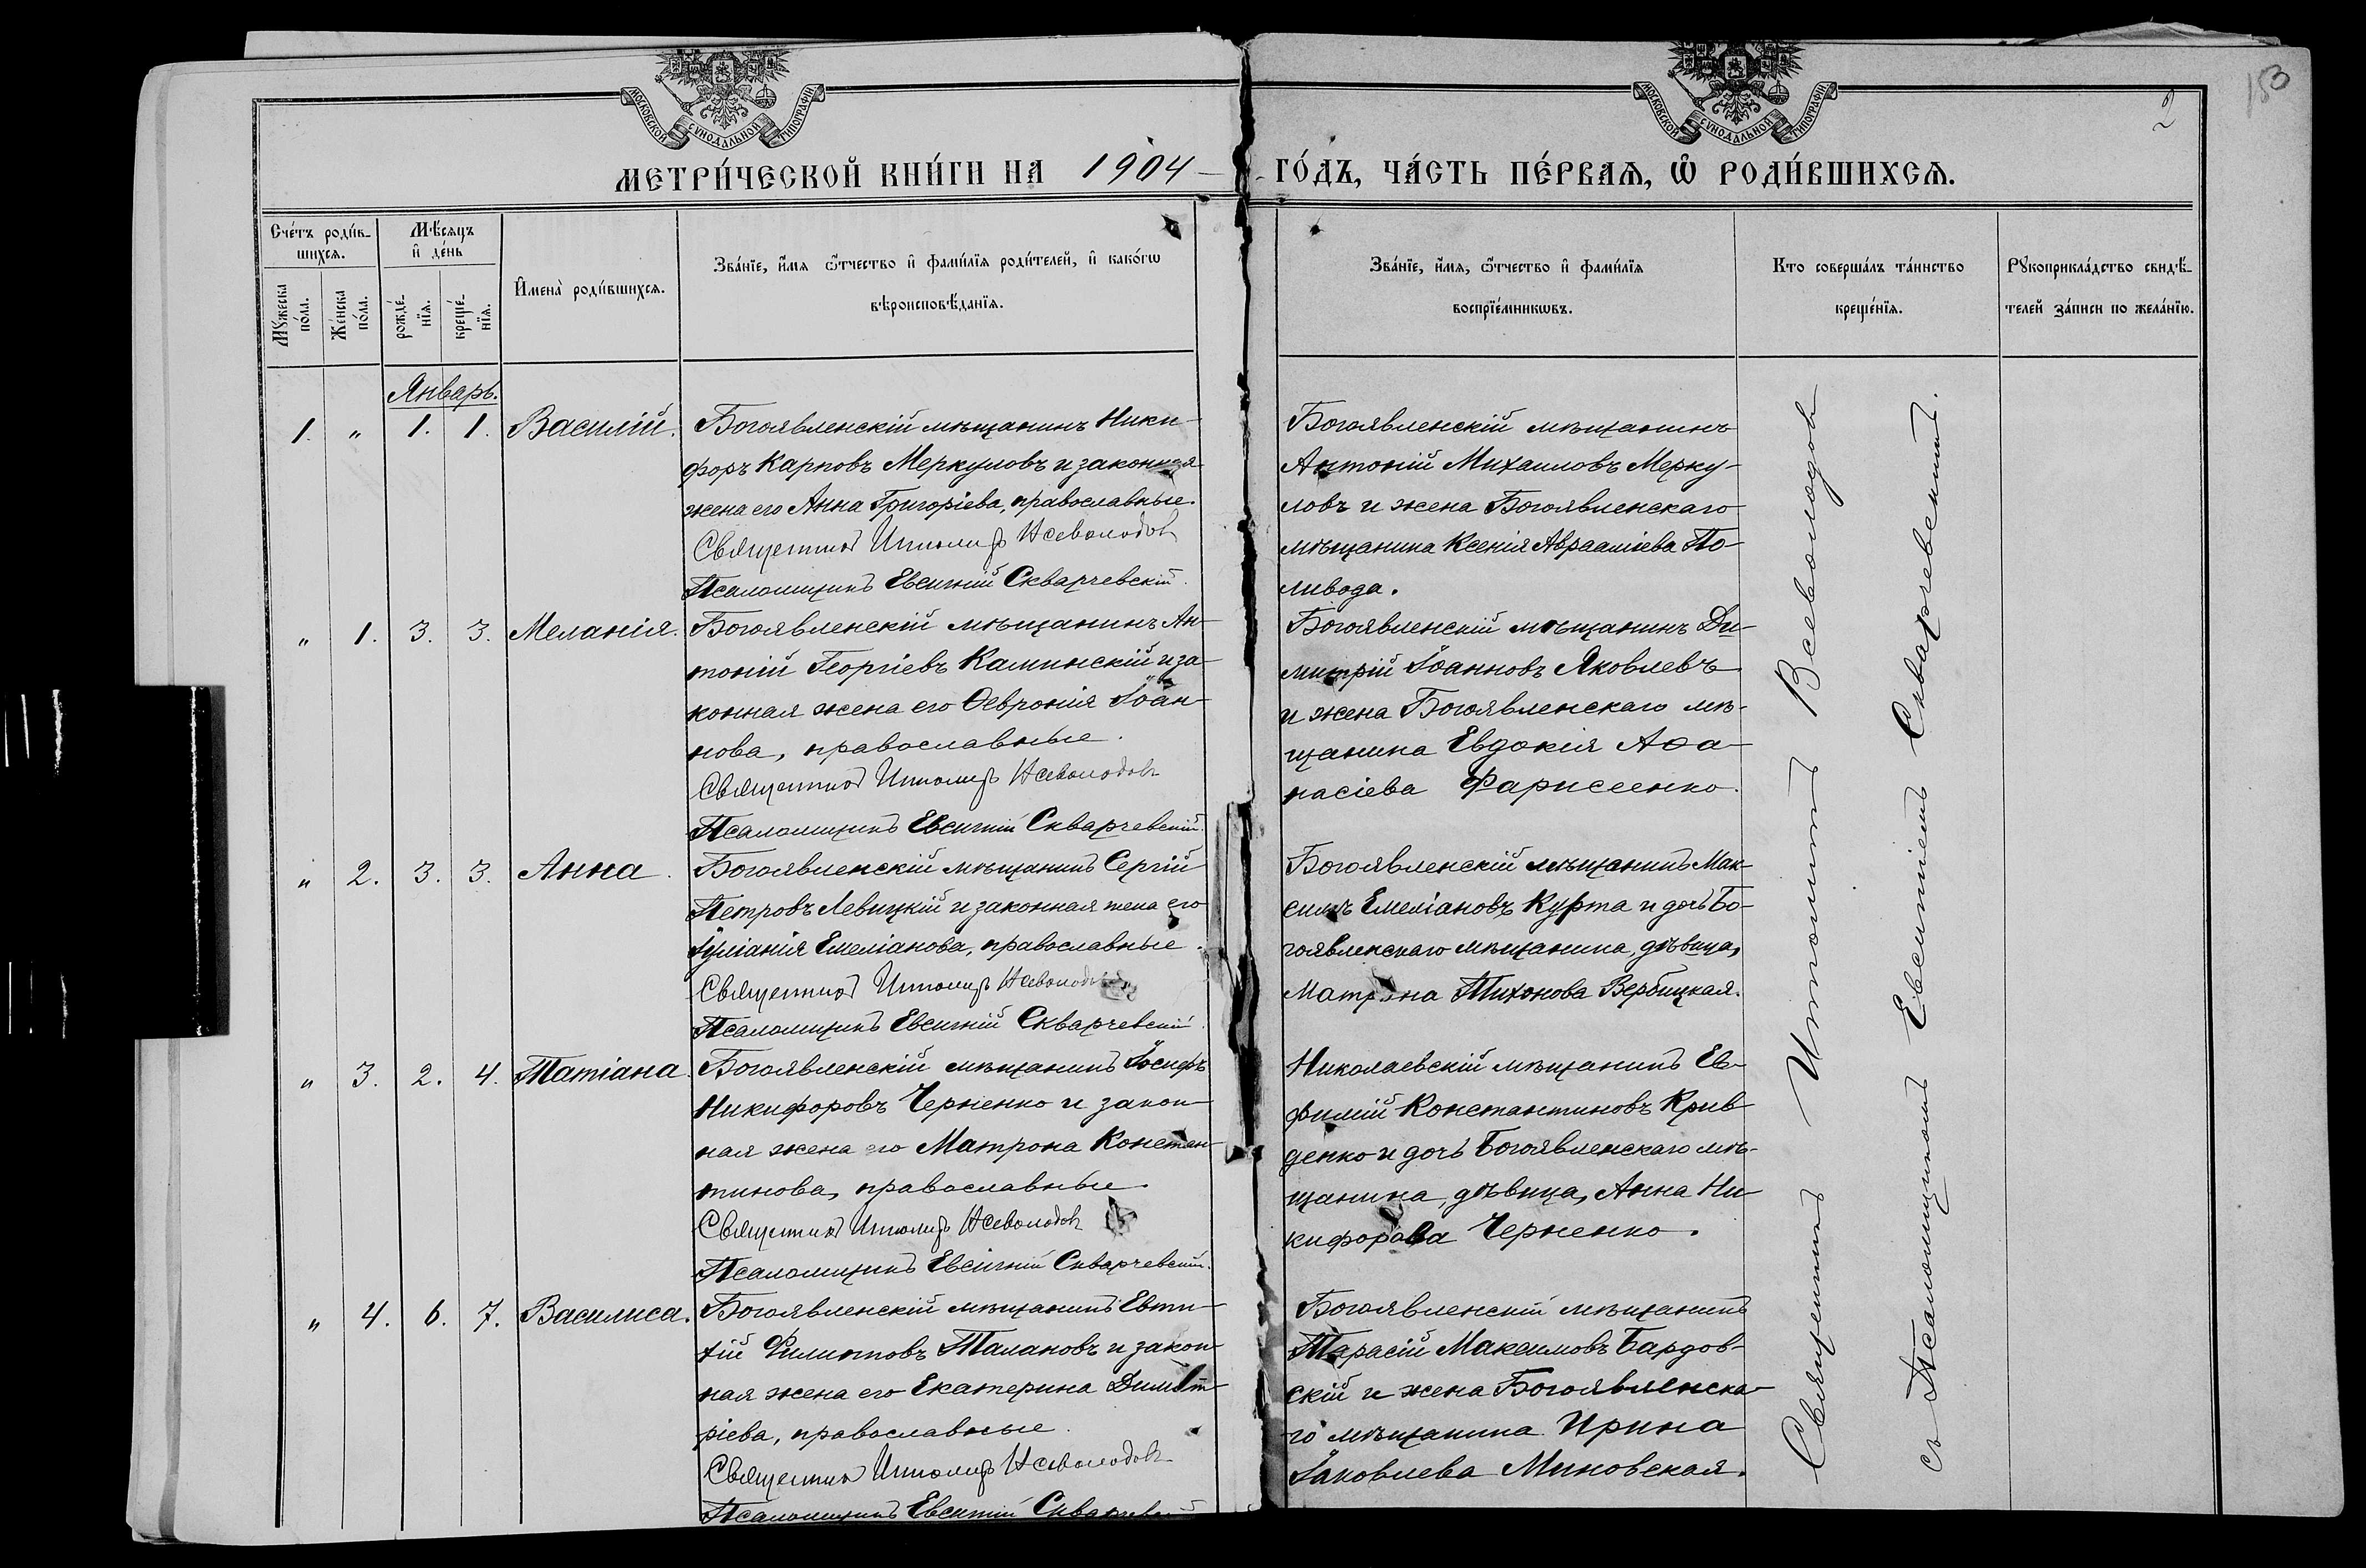 МОСКОВСКОЙ СѴНОДАЛЬНОЙ ТИПОГРАФІИ
МОСКОВСКОЙ СѴНОДАЛЬНОЙ ТИПОГРАФІИ
2
153
МЕТРИ́ЧЕСКОЙ КНИ́ГИ НА 1904 ГО́ДЪ, ЧА́СТЬ ПЕ́РВАѦ, Ѡ҆ РОДИ́ВШИХСѦ.
Сче́тъ роди́в-
шихсѧ.
Мѹ́жеска по́ла.
Же́нска по́ла.
Мѣ́сѧцъ
и҆ де́нь
рожде́-
нїѧ.
креще́-
нїѧ.
И҆мена̀ роди́вшихсѧ.
Зва́нїе, и҆́мѧ ѻ҆́тчество и҆ фами́лїѧ роди́телей, и҆ како́гѡ
вѣроисповѣ́данїѧ.
Зва́нїе, и҆́мѧ, ѻ҆́тчество и҆ фами́лїѧ
воспрїе́мникѡвъ.
Кто соверша́лъ та́инство
креще́нїѧ.
Рѹкоприкла́дство свидѣ́-
телей за́писи по жела́нїю.
Январь.
1. " 1. 1. Василій.
Богоявленскій мѣщанинъ Ники-
форъ Карповъ Меркуловъ и законная
жена его Анна Григоріева, православные.
Священникъ Ипполитъ Всеволодовъ
Псаломщикъ Евсигній Скварчевскій.
Богоявленскій мѣщанинъ
Антоній Михаиловъ Мерку-
ловъ и жена Богоявленскаго
мѣщанина Ксенія Авраамiева По-
ливода.
" 1. 3. 3. Меланія.
Богоявленскій мѣщанинъ Ан-
тоній Георгіевъ Каминскій и за-
конная жена его Ѳевронія Іоан-
нова, православные.
Священникъ Ипполитъ Всеволодовъ
Псаломщикъ Евсигній Скварчевскій.
Богоявленскій мѣщанинъ Ди-
митрій Іоанновъ Яковлевъ
и жена Богоявленскаго мѣ-
щанина Евдокія Аѳа-
насіева Фарисеенко.
" 2. 3. 3. Анна.
Богоявленскій мѣщанинъ Сергій
Петровъ Левицкій и законная жена его
Іуліанія Емеліанова, православные.
Священникъ Ипполитъ Всеволодовъ
Псаломщикъ Евсигній Скварчевскій.
Богоявленскій мѣщанинъ Мак-
симъ Емеліановъ Курта и дочь Бо-
гоявленскаго мѣщанина, дѣвица,
Матрона Тихонова Вербицкая.
" 3. 2. 4. Татіана.
Богоявленскій мѣщанинъ Іосифъ
Никифоровъ Черненко и закон-
ная жена его Матрона Констан-
тинова, православные.
Священникъ Ипполитъ Всеволодовъ
Псаломщикъ Евсигній Скварчевскій.
Николаевскій мѣщанинъ Ев-
фимій Константиновъ Крив-
денко и дочь Богоявленскаго мѣ-
щанина, дѣвица, Анна Ни-
кифорова Черненко.
" 4. 6. 7. Василиса.
Богоявленскій мѣщанинъ Евти-
хій Филипповъ Талановъ и закон-
ная жена его Екатерина Димит-
ріева, православные.
Священникъ Ипполитъ Всеволодовъ
Псаломщикъ Евсигній Скварчевскій
Богоявленскій мѣщанинъ
Тарасій Максимовъ Бардов-
скій и жена Богоявленска-
го мѣщанина Ирина
Іаковлева Миновская.
Священникъ Ипполитъ Всеволодовъ
съ Псаломщикомъ Евсигніемъ Скварчевскимъ.